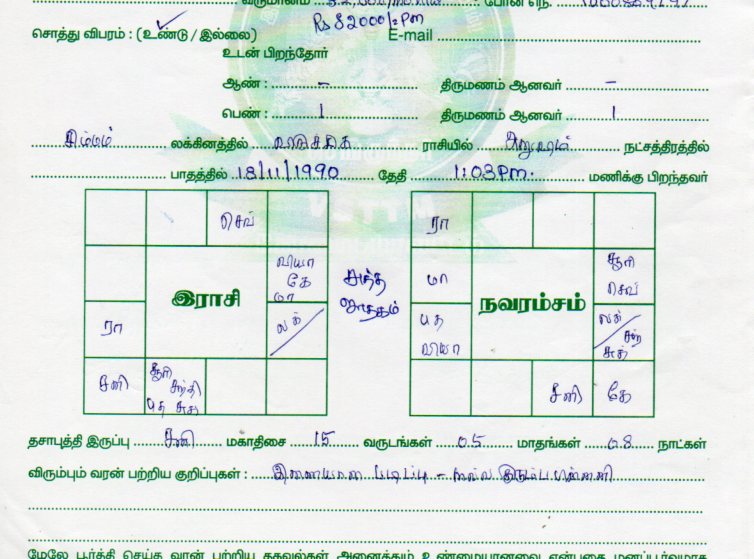 வருமானம் போன் எண்.
Rs 82000/- Pm
சொத்து விபரம் : (உண்டு / இல்லை) E-mail
உடன் பிறந்தோர்
ஆண் : – திருமணம் ஆனவர் –
பெண் : 1 திருமணம் ஆனவர் 1
சிம்மம் லக்கினத்தில் ராசியில் அனுஷம் நட்சத்திரத்தில்
பாதத்தில் 18/11/1990 தேதி 1:03 Pm. மணிக்கு பிறந்தவர்
செவ் ரா
வியா கே மா சுத்த ஜாதகம் மா சூரி செவ்
இராசி நவரம்சம்
ரா லக் புத வியா லக்
சனி சூரி சந்தி புத சுக் சனி கே
தசாபுத்தி இருப்பு சனி மகாதிசை 15 வருடங்கள் 05 மாதங்கள் 08 நாட்கள்
விரும்பும் வரன் பற்றிய குறிப்புகள் : இணையான படிப்பு – நல்ல குடும்ப பின்னணி
மேலே பூர்த்தி செய்த வரன் பற்றிய தகவல்கள் அனைத்தும் உண்மையானவை என்பதை மனப்பூர்வமாக